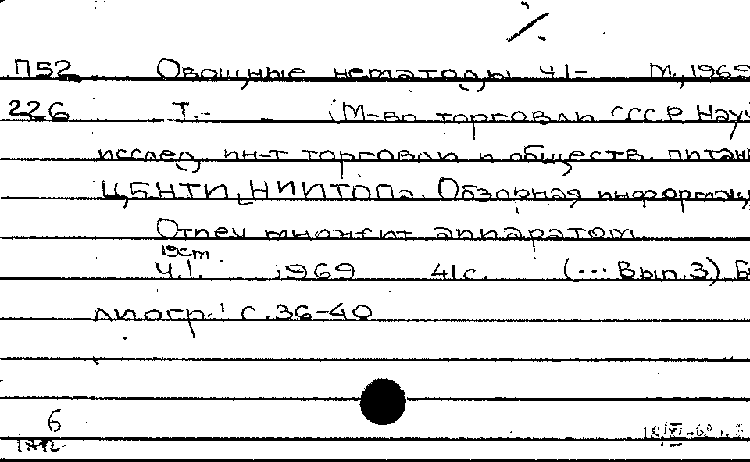 П52 Овощные нематоды Ч.1- М., 1969
226 Т.- - (М-во торговли СССР. Науч
исслед. ин-т торговли и обществ. питан
ЦБНТИ, НИИТОП. Обзорная информац
Отпеч. множит. аппаратом
Ч.1. 1969 41с. (... Вып.3) Б
лиогр.: с.36-40
6